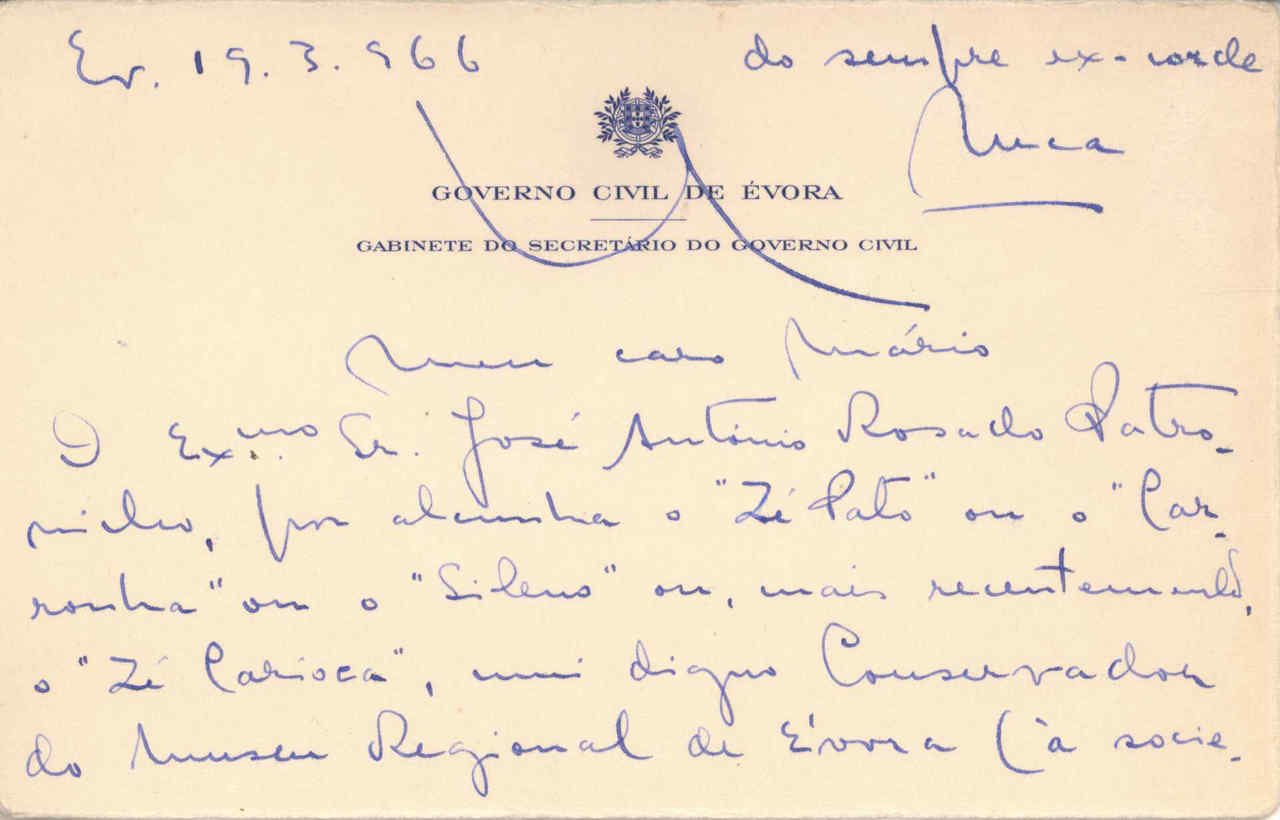 Ev. 19.3.966
do sempre ex-corde
GOVERNO CIVIL DE ÉVORA
GABINETE DO SECRETÁRIO DO GOVERNO CIVIL
Meu caro Mário
O Exmo. Sr. José António Rosado Patro-
nilho, por alcunha o "Zé Pato" ou o "Car-
ronha" ou o "Sileno" ou, mais recentemente,
o "Zé Carioca", mui digno Conservador
do Museu Regional de Évora (à socie-